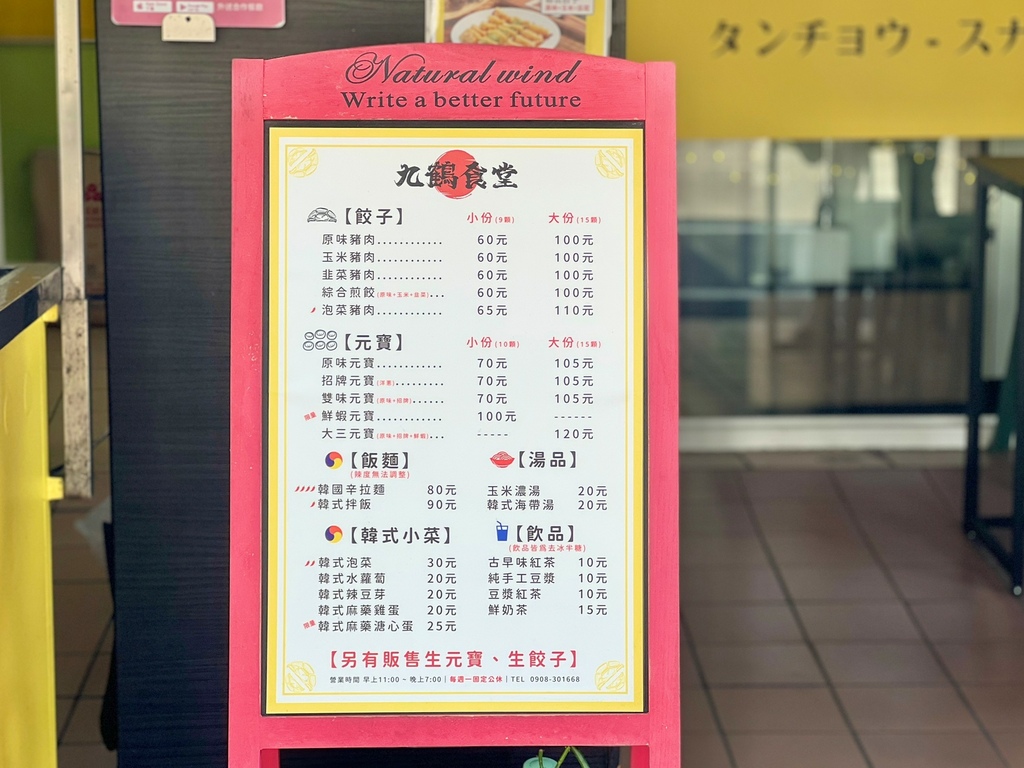 外送合作服務
タンチョウ - スナ
Natural wind
Write a better future
九鶴食堂
【餃子】 小份(9顆) 大份(15顆)
原味豬肉............ 60元 100元
玉米豬肉............ 60元 100元
韭菜豬肉............ 60元 100元
綜合煎餃(原味+玉米+韭菜)... 60元 100元
泡菜豬肉............ 65元 110元
【元寶】 小份(10顆) 大份(15顆)
原味元寶............ 70元 105元
招牌元寶(洋蔥)......... 70元 105元
雙味元寶(原味+招牌)...... 70元 105元
限量 鮮蝦元寶............ 100元 ------
大三元寶(原味+招牌+鮮蝦)... ----- 120元
【飯麵】 【湯品】
(辣度無法調整)
韓國辛拉麵 80元 玉米濃湯 20元
韓式拌飯 90元 韓式海帶湯 20元
【韓式小菜】 【飲品】
(飲品皆為去冰半糖)
韓式泡菜 30元 古早味紅茶 10元
韓式水蘿蔔 20元 純手工豆漿 10元
韓式辣豆芽 20元 豆漿紅茶 10元
韓式麻藥雞蛋 20元 鮮奶茶 15元
限量 韓式麻藥溏心蛋 25元
【另有販售生元寶、生餃子】
營業時間 早上11:00 ~ 晚上7:00｜每週一固定公休｜TEL 0908-301668